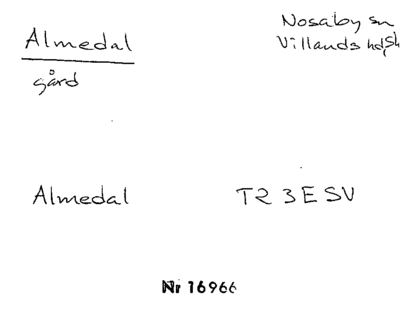 Almedal
gård
Nosaby sn
Villands hd, Sk
Almedal TR 3E SV
Nr 16966